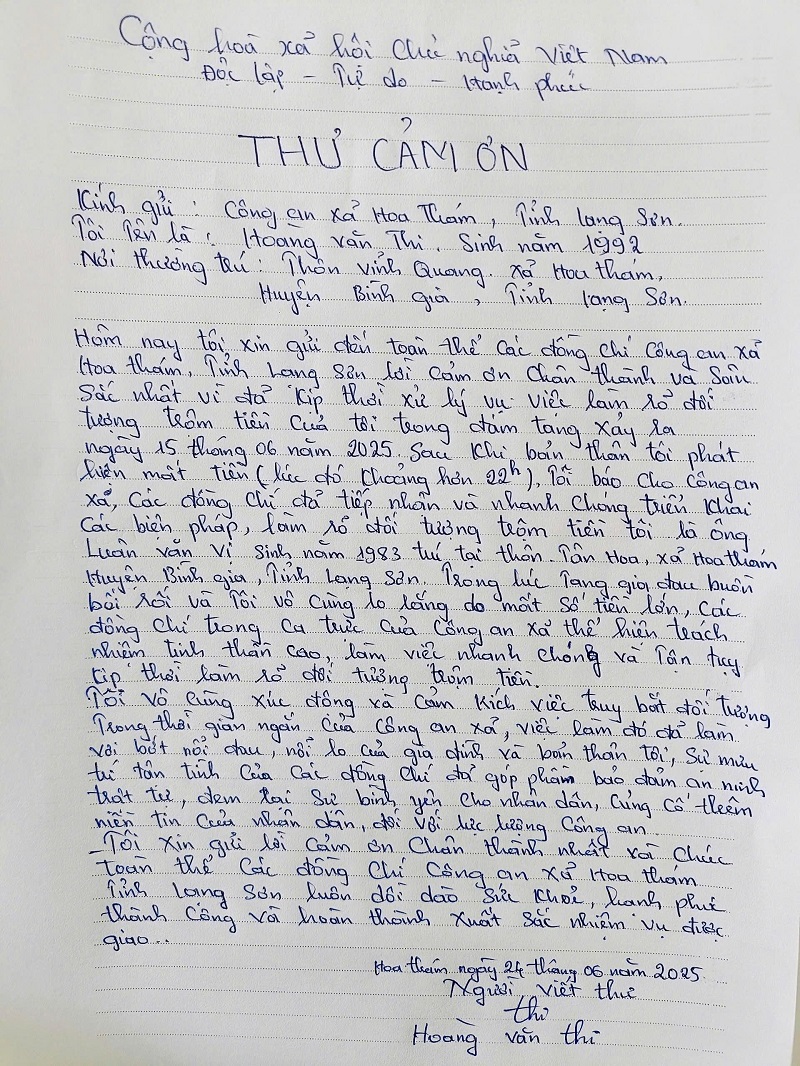 Cộng hoà xả hội chủ nghiả Việt Nam
Độc lập – Tự do – Hạnh phúc
THƯ CẢM ƠN
Kính gửi : Công an xả Hoa Thám, Tỉnh Lạng Sơn.
Tôi Tên là : Hoàng văn Thi. Sinh năm 1992
Nơi thường trú : Thôn vĩnh Quang. xả Hoa thám,
Huyện Bình gia, Tỉnh Lạng Sơn.
Hôm nay tôi xin gửi đến toàn thể các đồng chí công an xả
Hoa thám, Tỉnh Lạng Sơn lời cảm ơn chân thành và sâu
sắc nhất vì đả kịp thời xử lý vụ việc làm rỏ đối
tượng trộm tiền của tôi trong đám tang xảy ra
ngày 15 tháng 06 năm 2025. Sau khi bản thân tôi phát
hiện mất tiền (lúc đó khoảng hơn 22h), Tôi báo cho công an
xả, các đồng chí đả tiếp nhận và nhanh chóng triển khai
các biện pháp, làm rỏ đối tượng trộm tiền tôi là ông
Luân văn Vi sinh năm 1983 trú tại thôn Tân Hoa, xả Hoa thám
Huyện Bình gia, Tỉnh Lạng Sơn. Trong lúc Tang gia đau buồn
bối rối và Tôi vô cùng lo lắng do mất số tiền lớn, các
đồng chí trong ca trực của công an xả thể hiện trách
nhiệm tinh thần cao, làm việc nhanh chóng và Tận tụy
kịp thời làm rỏ đối tượng trộm tiền.
Tôi vô cùng xúc động và cảm kích việc truy bắt đối tượng
Trong thời gian ngắn của công an xả, việc làm đó đả làm
vơi bớt nổi đau, nổi lo của gia đình và bản thân tôi, Sự mưu
trí tận tình của các đồng chí đả góp phần bảo đảm an ninh
trật tự, đem lại sự bình yên cho nhân dân, củng cố thêm
niền tin của nhân dân, đối với lực lượng công an
_Tôi xin gửi lời cảm ơn chân thành nhất và chúc
toàn thể các đồng chí công an xả Hoa thám
Tỉnh Lạng Sơn luôn dồi dào sức khoẻ, hạnh phúc
thành công và hoàn thành xuất sắc nhiệm vụ được
giao...
Hoa thám ngày 24 tháng 06 năm 2025
Người viết thư
thi
Hoàng văn thi